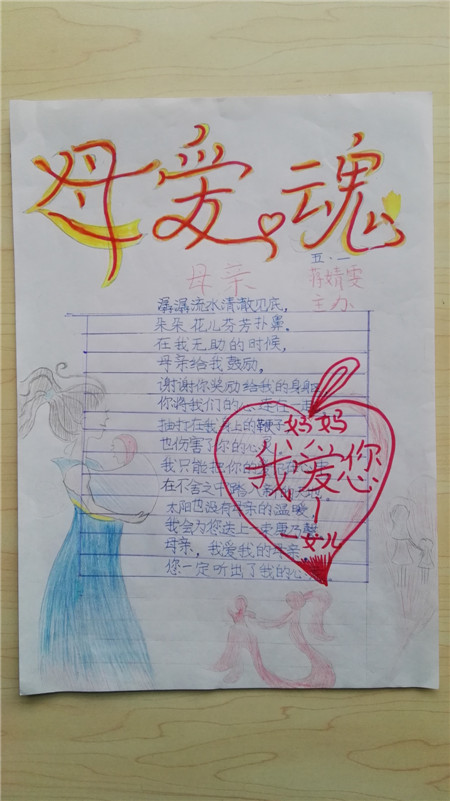 母爱魂
五.一
母亲
蒋婧雯
主办
潺潺流水清澈见底,
朵朵花儿芬芳扑鼻。
在我无助的时候,
母亲给我鼓励。
谢谢你奖励给我的身躯
你将我们的心连在一起
抽打在我身上的鞭子
也伤害了你的心
我只能把你的
在不舍之中踏入
太阳也没有母亲的温暖,
我会为您送上一束康乃馨
母亲,我爱我的母亲
您一定听出了我的心
妈妈
我爱您
一女儿
心